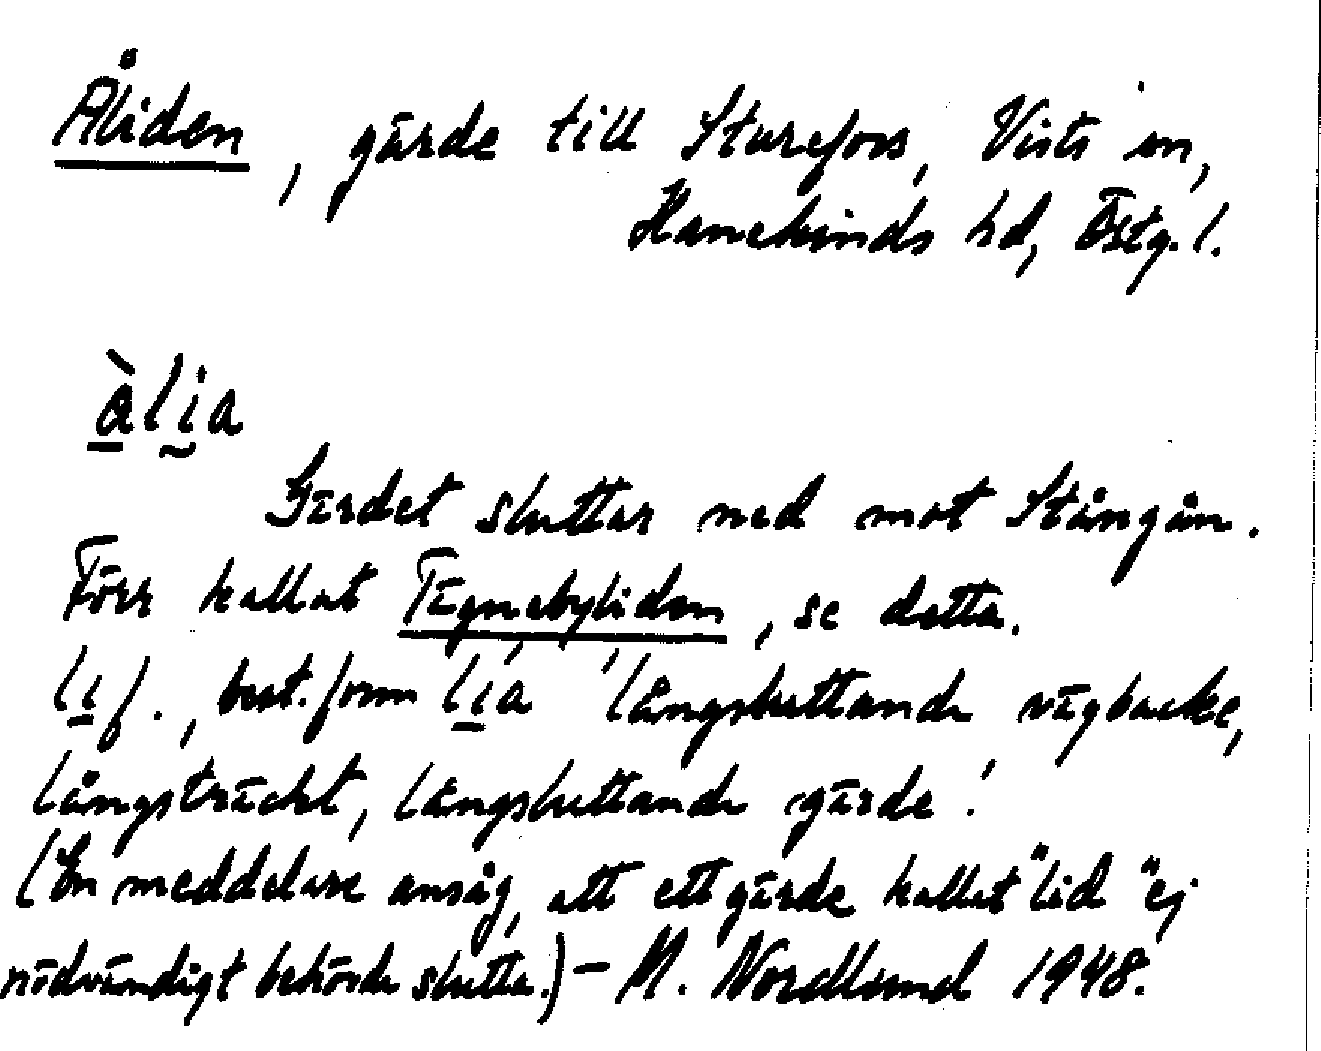 Åliden, gärde till Sturefors, Vists sn,
Hanekinds hd, Östg. l.
àlia
Gärdet sluttar ned mot Stångån.
Förr kallat Tägnebyliden, se detta.
li f., best. form lia 'långsluttande vägbacke,
långsträckt, långsluttande gärde'.
(En meddelare ansåg, att ett gärde kallat "lid" ej
nödvändigt behövde slutta.) – M. Nordlund 1948.